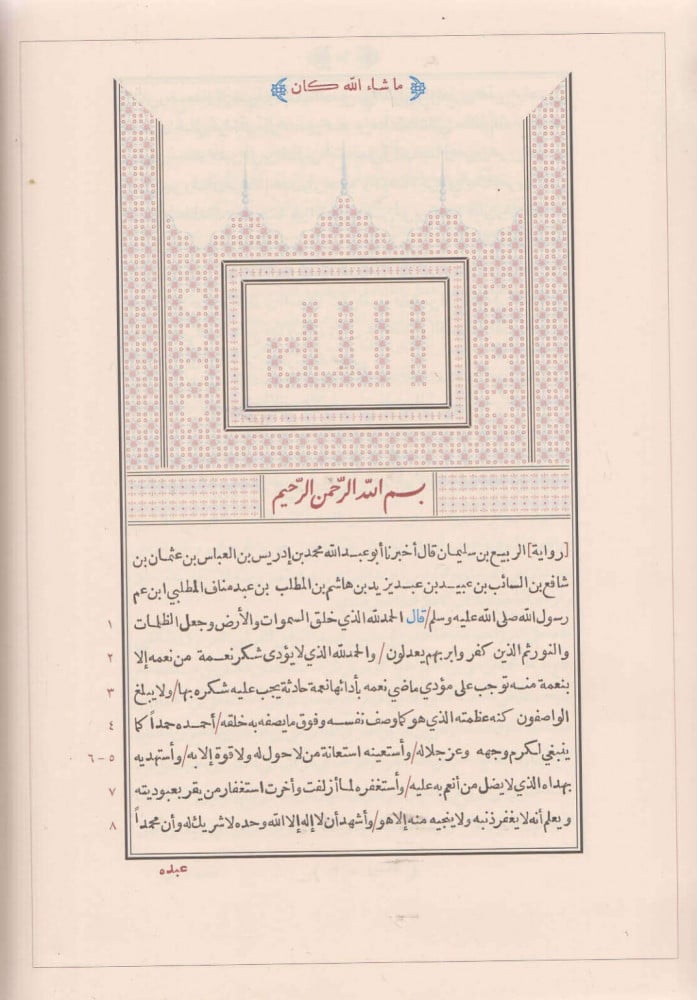 ما شاء الله كان
الله
بسم الله الرحمن الرحيم
[رواية] الربيع بن سليمان قال أخبرنا أبو عبد الله محمد بن إدريس بن العباس بن عثمان بن
شافع بن السائب بن عبيد بن عبد يزيد بن هاشم بن المطلب بن عبد مناف المطلبي ابن عم
رسول الله صلى الله عليه وسلم/ قال الحمد لله الذي خلق السموات والأرض وجعل الظلمات ١
والنور ثم الذين كفروا بربهم يعدلون/ والحمد لله الذي لا يؤدى شكر نعمة من نعمه إلا ٢
بنعمة منه توجب على مؤدي ماضي نعمه بأدائها نعمة حادثة يجب عليه شكره بها/ ولا يبلغ ٣
الواصفون كنه عظمته الذي هو كما وصف نفسه وفوق ما يصفه به خلقه/ أحمده حمداً كما ٤
ينبغي لكرم وجهه وعز جلاله/ وأستعينه استعانة من لا حول له ولا قوة إلا به/ وأستهديه ٥-٦
بهداه الذي لا يضل من أنعم به عليه/ وأستغفره لما أزلفت وأخرت استغفار من يقر بعبوديته ٧
ويعلم أنه لا يغفر ذنبه ولا ينجيه منه إلا هو/ وأشهد أن لا إله إلا الله وحده لا شريك له وأن محمداً ٨
عبده